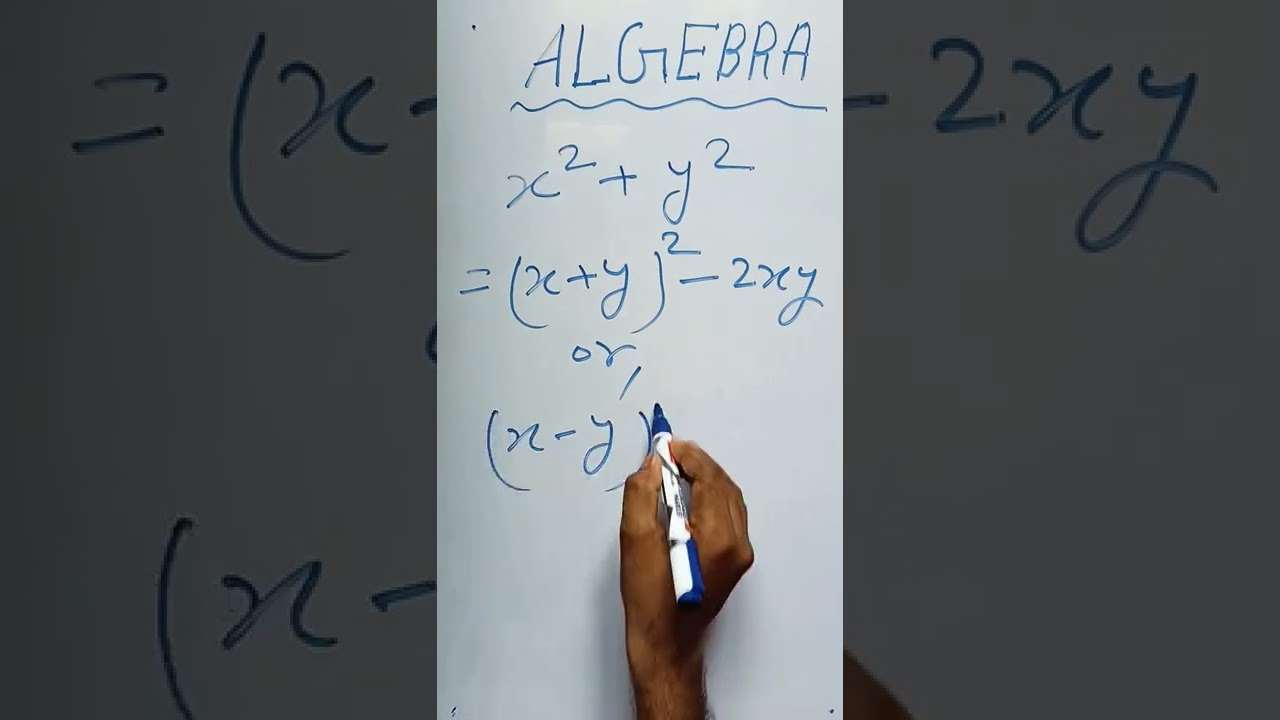 ALGEBRA
x² + y²
= (x+y)² - 2xy
or,
(x-y)